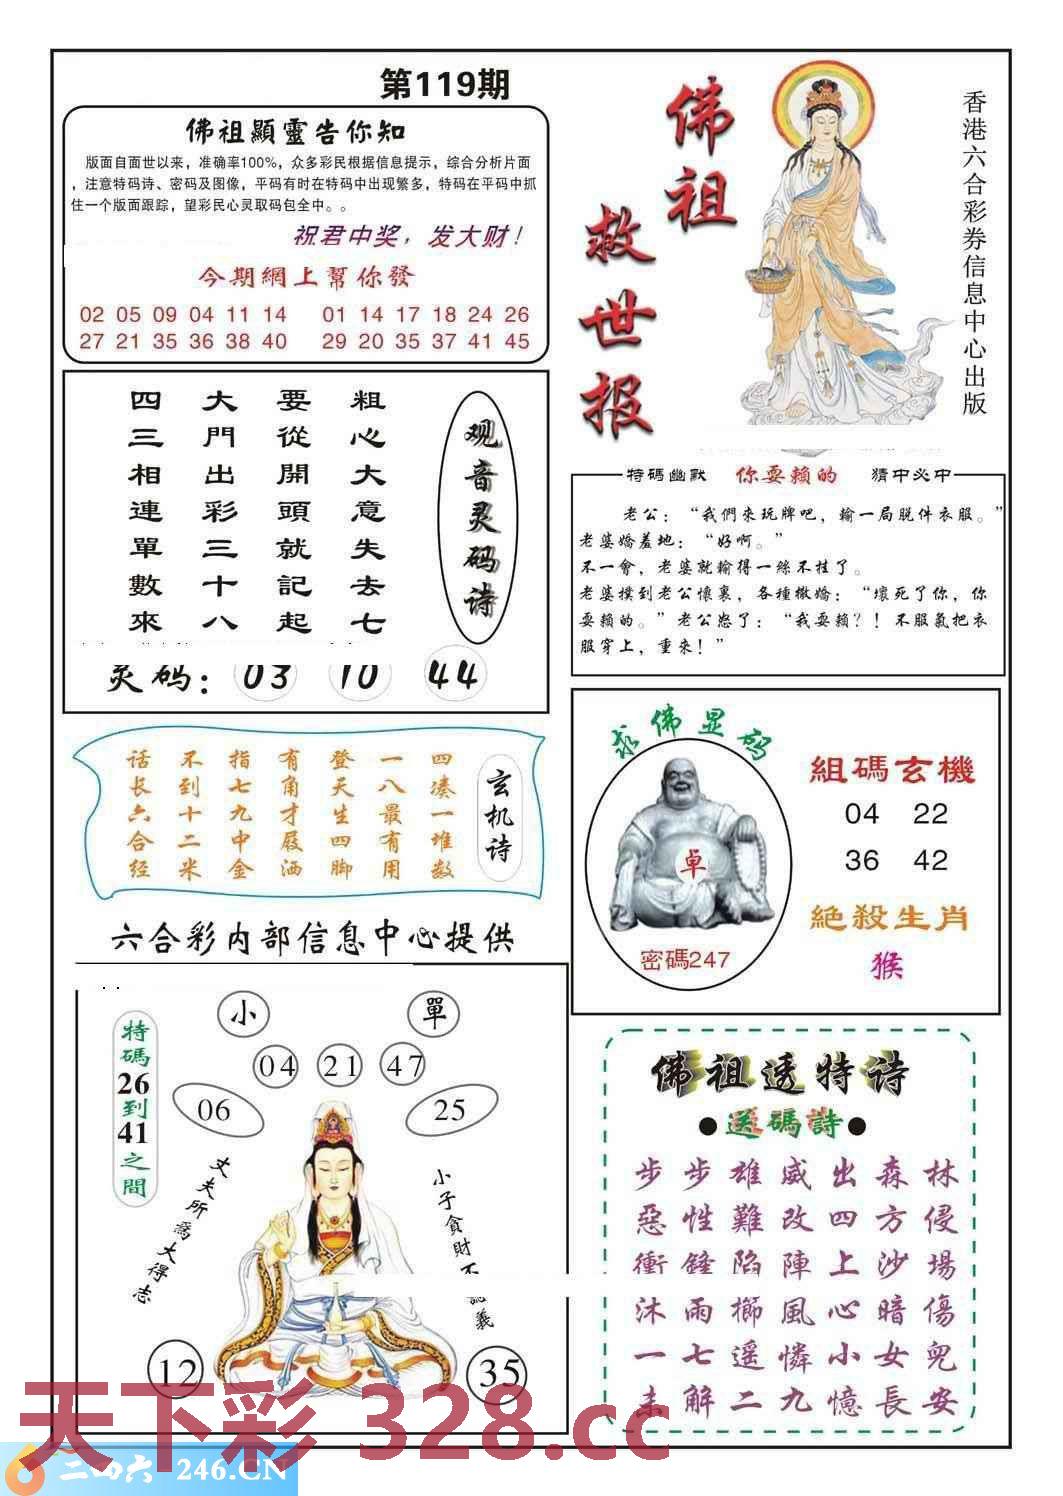 第119期
佛祖顯靈告你知
版面自面世以来，准确率100%，众多彩民根据信息提示，综合分析片面
，注意特码诗、密码及图像，平码有时在特码中出现繁多，特码在平码中抓
住一个版面跟踪，望彩民心灵取码包全中。。
祝君中奖，发大财！
今期網上幫你發
02 05 09 04 11 14 01 14 17 18 24 26
27 21 35 36 38 40 29 20 35 37 41 45
佛祖
救世报
香港六合彩券信息中心出版
观音灵码诗
粗心大意失去七
要從開頭就記起
大門出彩三十八
四三相連單數來
灵码： 03 10 44
特碼幽默 你耍賴的 猜中必中
老公：“我們來玩牌吧，輸一局脱件衣服。”
老婆嬌羞地：“好啊。”
不一會，老婆就輸得一絲不挂了。
老婆撲到老公懷裏，各種撒嬌：“壞死了你，你
耍賴的。”老公怒了：“我耍賴？！不服氣把衣
服穿上，重來！”
玄机诗
四凑一堆数
一八最有用
登天生四脚
有角才屐洒
指七九中金
不到十二米
话长六合经
求佛显码
卓
密碼247
組碼玄機
04 22
36 42
絶殺生肖
猴
六合彩内部信息中心提供
小 單
04 21 47
06 25
特碼26到41之間
丈夫所為大得志
小子貪財不
義
12 35
佛祖透特诗
●送碼詩●
步步雄威出森林
惡性難改四方侵
衝鋒陷陣上沙場
沐雨櫛風心暗傷
一七遥憐小女兒
未解二九憶長安
天下彩 328.cc
二四六 246.CN